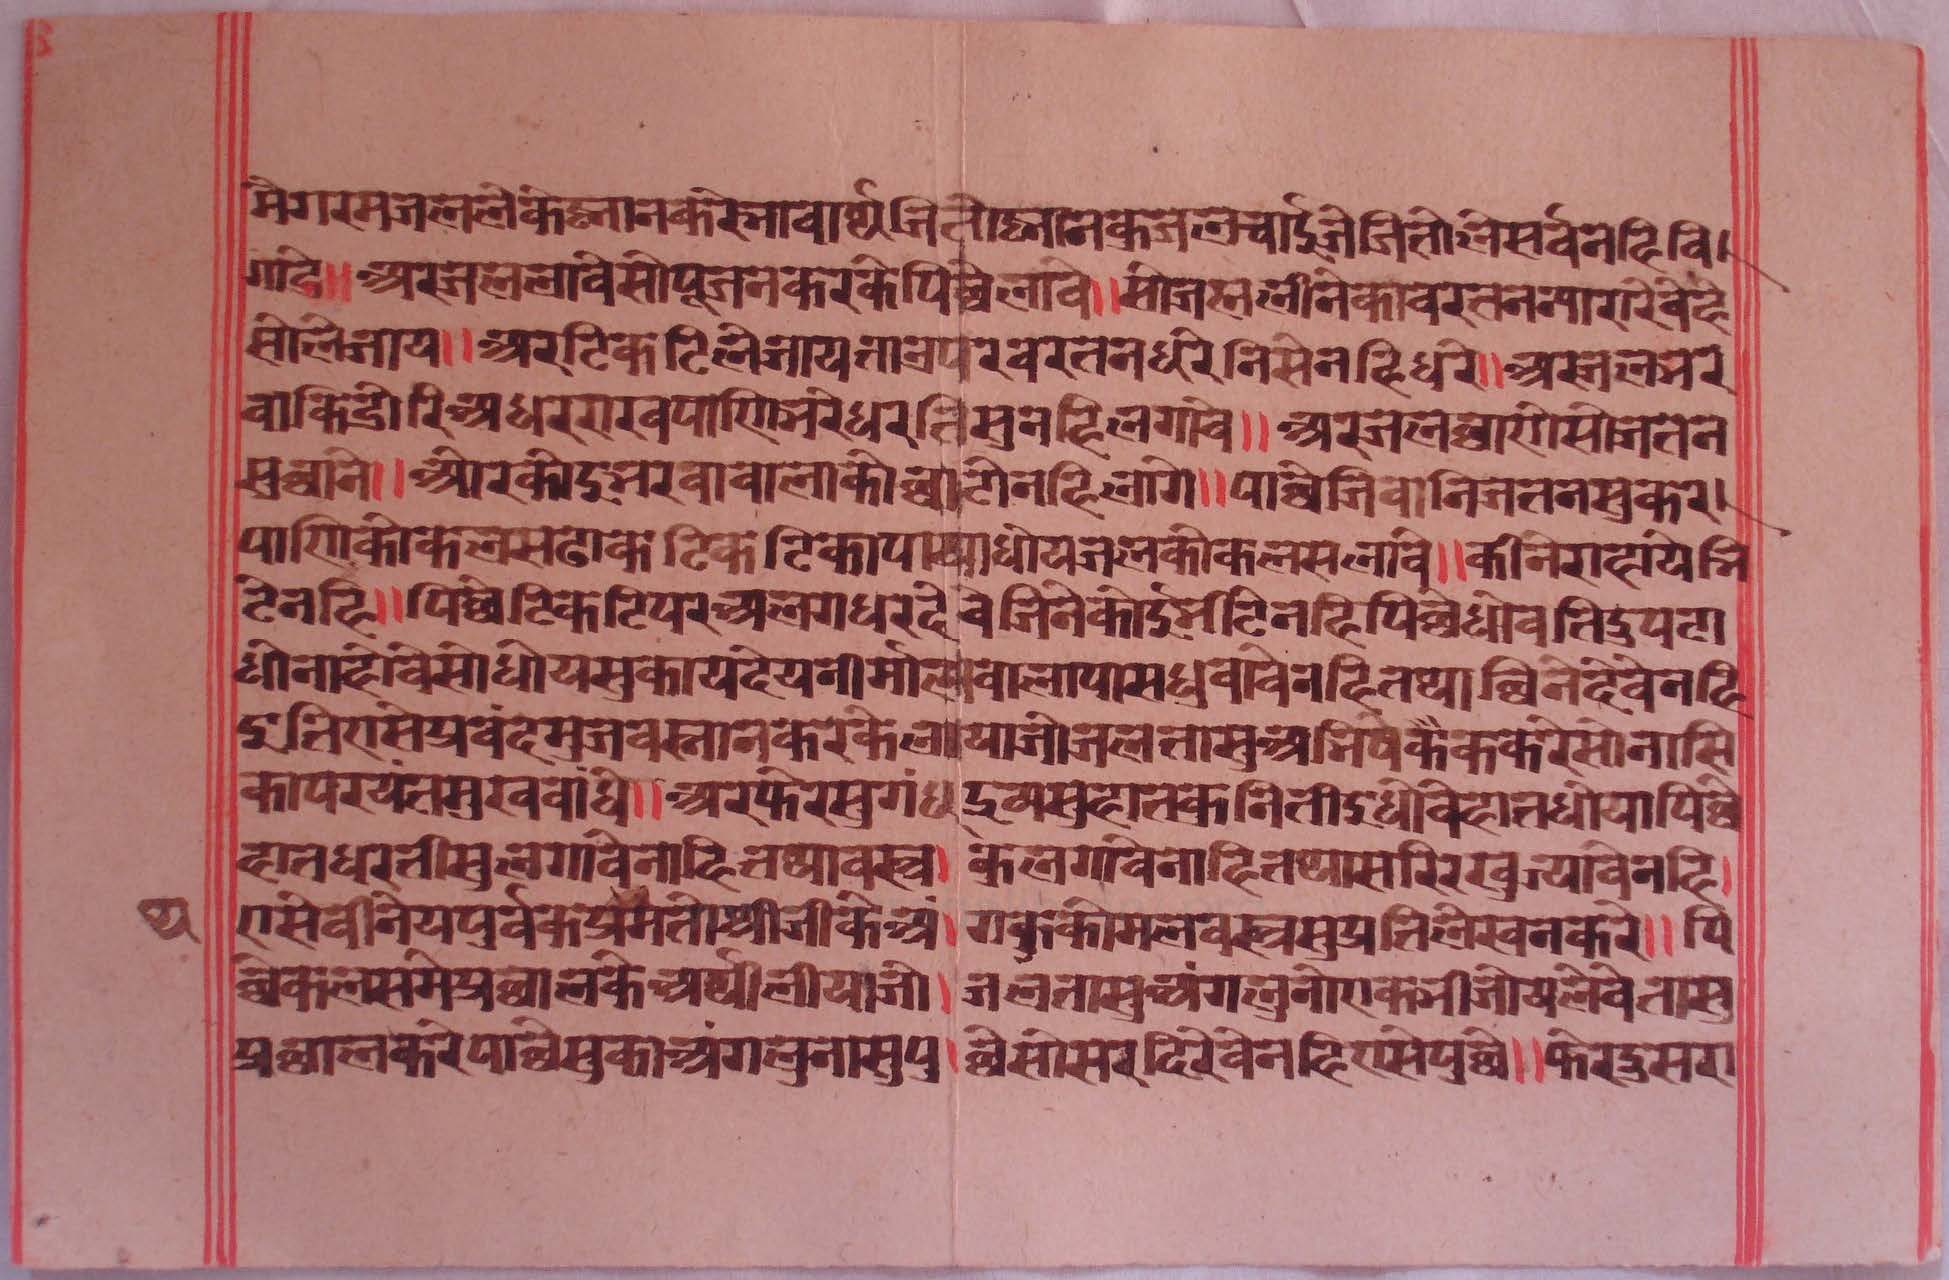 मैगरमजललेकेछानानकरेनावार्थजितोछानानकुजलचाईजेजितोलेसर्वनहिवि।
गाडे॥ अरजललावेसोपूजनकरकेपिछैलावे॥ सोजललीनेकोवरतनन्यारारेवेहे
सोलेजाय॥ अरटिकटिलेजायताउपरवरतनधरेनिसेनहिधरे॥ अरजलभर
वाकिडोरिअधरराखपाणिभरेधरतिसुनहिलगावे॥ अरजलछाणेसोजतन
सुछाने॥ ओरकोईभरवावालाकोछाटोनहिलागे॥ पाछैजिवानिजतनसुकर।
पाणिकोकलसढाकटिकटिकापायाधोयजलकोकलसलावे॥ कीनेराहायेभि
टेनहि॥ पिछैटिकटिपरअलगधरदेवेजिनेकोईभीटेनहिपिछैधोवतिदुपटा
धोनाहोवेसोधोयसुकायदेयनीर्मालवालापासधुवावेनहितथाछिनेदेवेनहि
ईतिएसेप्रवंदमुजवस्नानकरकेलायाजोजलतासुअभिषेककरेसोनासि
कापरयंतमुखवांधे॥ अरफेरसुगंधद्रव्यसुहातकुनितीईधोवेहातधोयापिछै
हातधरतीसुलगावेनाहितथावस्त्र।कुलगावेनाहितथासरिरखुज्यावेनहि।
एसेवीनेयपुर्वकप्रमतोश्रीजीकेअंगकुकोमलवस्त्रसुप्रतिलेखनकरे॥ पि
छेकलसमेप्रछालकेअर्थीलीयाजो।जलतासुअंगलुनोएकभीजोयलेवेतासु
प्रछालकरेपाछैसुकाअंगलुनासुपु।छैसोसरदिरेवेनहिएसेपुछै॥ फेरदुसरा